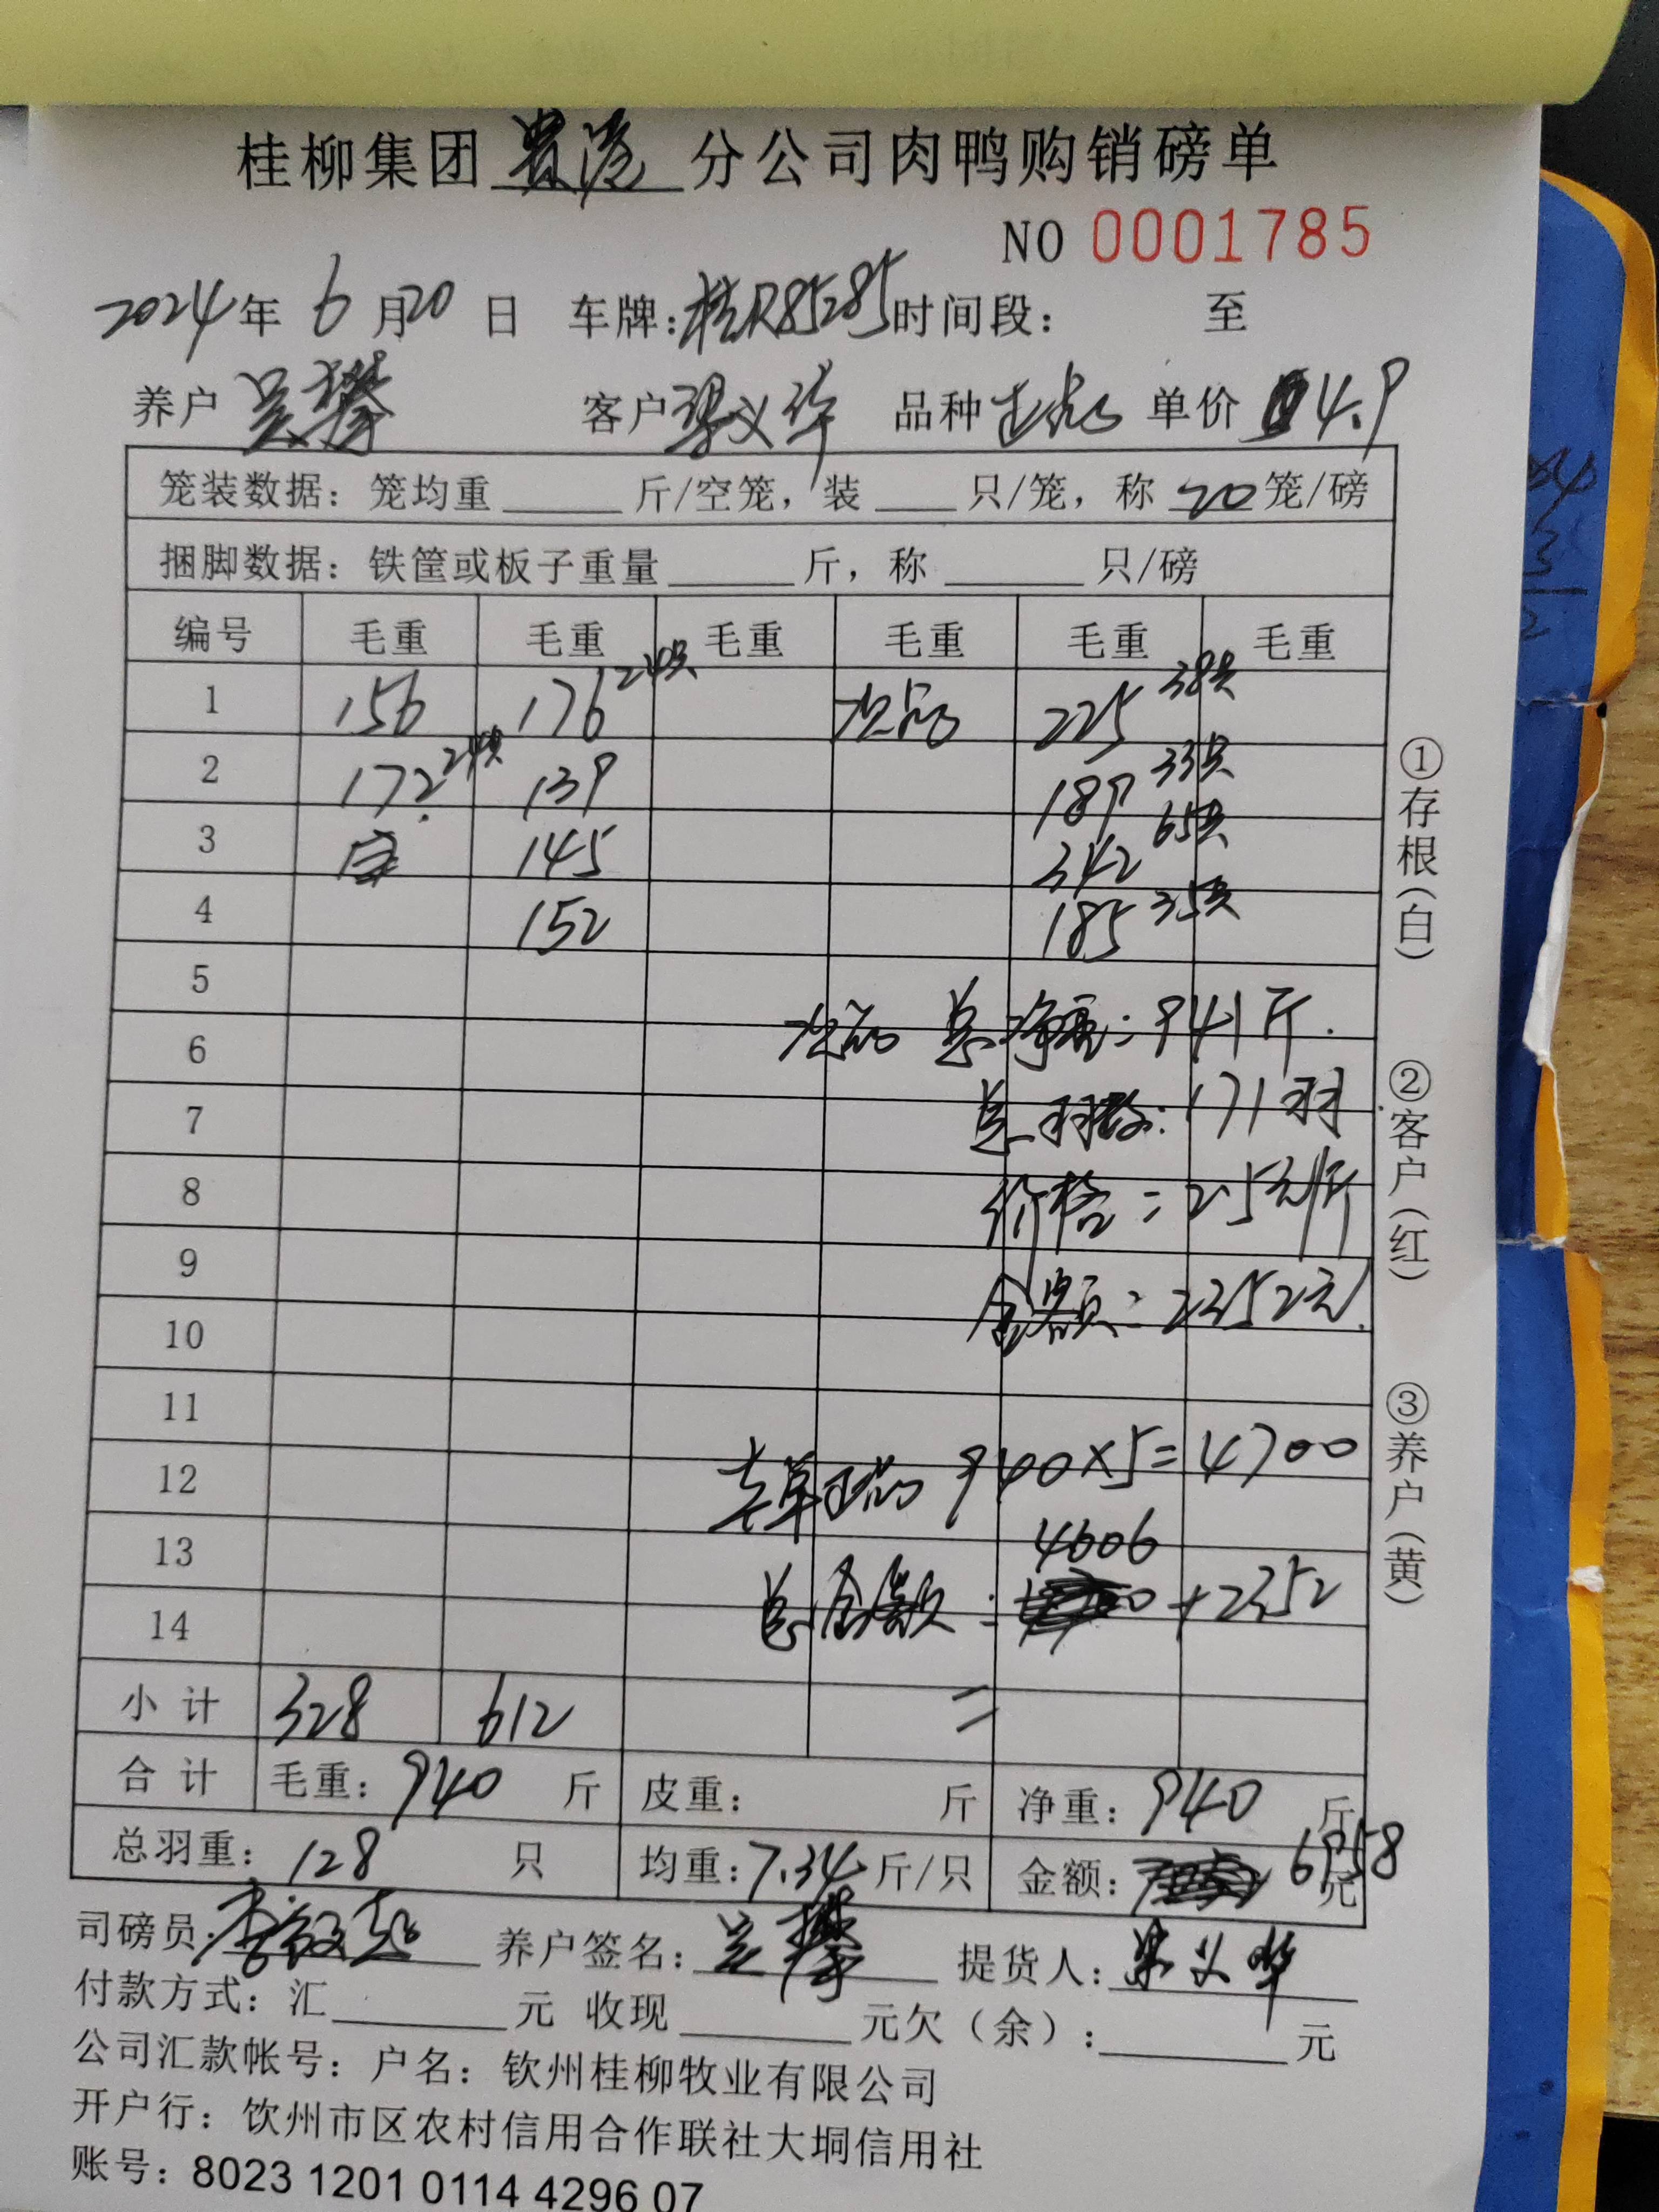 桂柳集团 贵港 分公司肉鸭购销磅单
NO 0001785
2024年 6月20日 车牌:桂R85285 时间段: 至
养户 吴攀 客户 梁义华 品种 单价 4.9
笼装数据: 笼均重 斤/空笼, 装 只/笼, 称 20 笼/磅
捆脚数据: 铁筐或板子重量 斤, 称 只/磅
编号 毛重 毛重 毛重 毛重 毛重 毛重
1 156 176 24只 次品 225 38只
2 172 24只 139 189 33只
3 145 342 65只
4 152 185 35只
5
次品 总净重: 941斤.
6
7 总羽数: 171羽
8 价格: 2.5元/斤
9 金额: 2352元.
10
11
12 940×5=4700
13 4606
14 总金额: +2352
小计 328 612 =
合计 毛重: 940 斤 皮重: 斤 净重: 940 斤
总羽重: 128 只 均重: 7.34 斤/只 金额: 6958 元
司磅员: 养户签名: 吴攀 提货人: 梁义华
付款方式: 汇 元 收现 元欠(余): 元
公司汇款帐号: 户名: 钦州桂柳牧业有限公司
开户行: 饮州市区农村信用合作联社大垌信用社
账号: 8023 1201 0114 4296 07
①存根(白)
②客户(红)
③养户(黄)